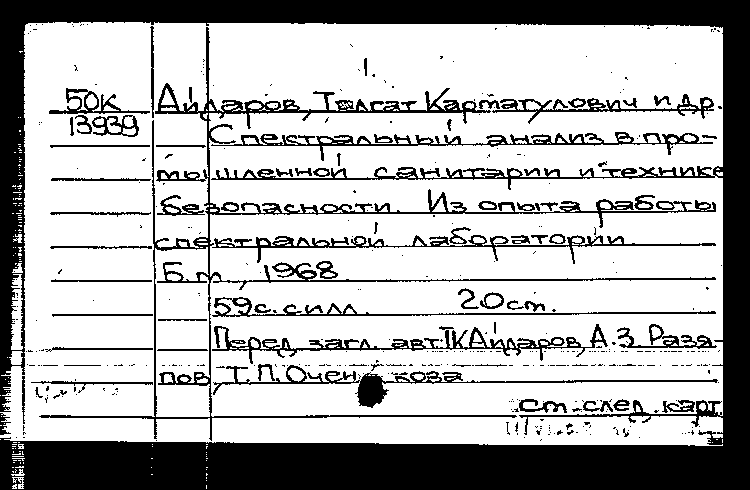 1.
50К Айдаров, Толгат Карматулович и др.
13939 Спектральный анализ в про-
мышленной санитарии и технике
безопасности. Из опыта работы
спектральной лаборатории.
Б.м., 1968
59с. с илл. 20 см.
Перед загл. авт. ТК Айдаров, А.З. Разя-
пов, Т.П. Очен кова
ст. след. карт.